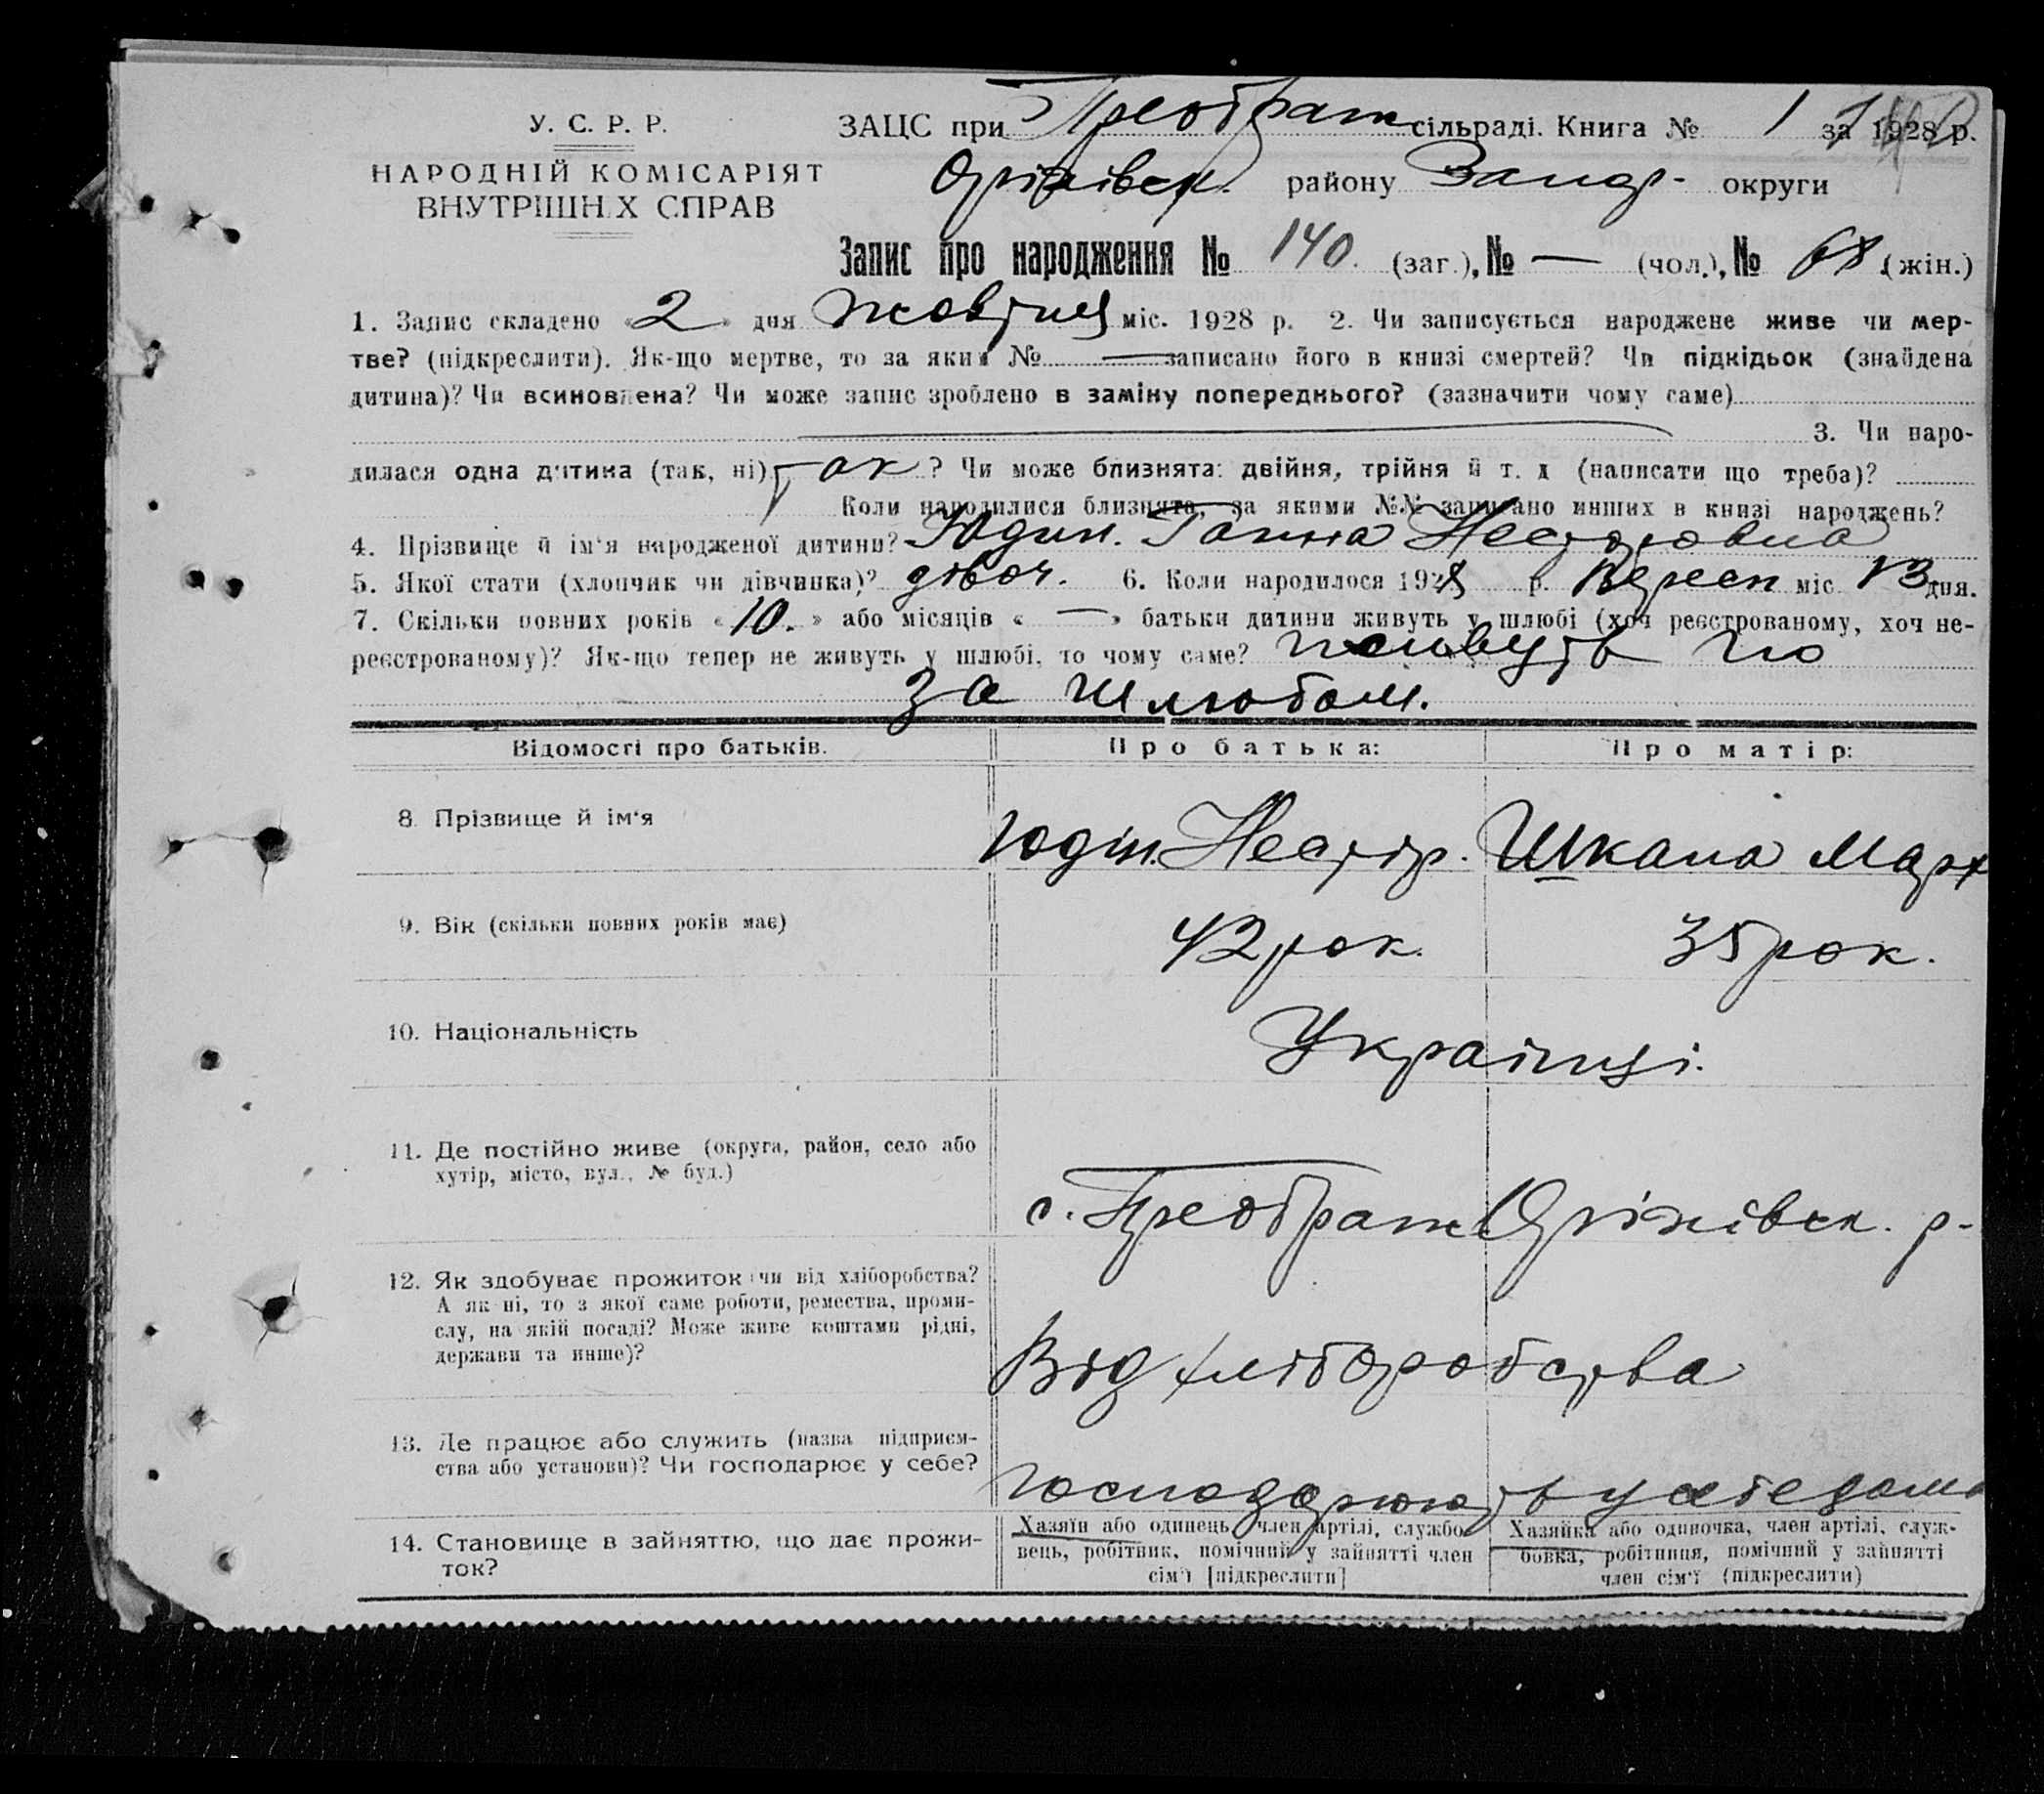 У. С. Р. Р.
НАРОДНІЙ КОМІСАРІЯТ
ВНУТРІШНІХ СПРАВ
ЗАЦС при Преображ сільраді. Книга № 1 за 1928 р.
Оріхівськ. району Запор- округи
Запис про народження № 140. (заг.), № — (чол.), № 68 (жін.)
1. Запис складено «2» дня жовтня міс. 1928 р. 2. Чи записується народжене живе чи мер-
тве? (підкреслити). Як-що мертве, то за яким № — записано його в книзі смертей? Чи підкідьок (знайдена
дитина)? Чи всиновлена? Чи може запис зроблено в заміну попереднього? (зазначити чому саме)
3. Чи наро-
дилася одна дитина (так, ні) так? Чи може близнята: двійня, трійня й т. д (написати що треба)?
Коли народилися близнята, за якими №№ записано инших в книзі народжень?
4. Прізвище й ім'я народженої дитини? Юдин. Ганна Несторовна
5. Якої стати (хлопчик чи дівчинка)? дівоч. 6. Коли народилося 1928 р. Вересн міс. 13 дня.
7. Скільки повних років «10.» або місяців «—» батьки дитини живуть у шлюбі (хоч реєстрованому, хоч не-
реєстрованому)? Як-що тепер не живуть у шлюбі, то чому саме? живуть по
за шлюбом.
Відомості про батьків.
Про батька:
Про матір:
8. Прізвище й ім'я
Юдін. Нестор.
Шкапа Мар
9. Вік (скільки повних років має)
42 рок.
35 рок.
10. Національність
Українці.
11. Де постійно живе (округа, район, село або
хутір, місто, вул., № буд.)
с. Преображ Оріхівськ. р-
12. Як здобуває прожиток: чи від хліборобства?
А як ні, то з якої саме роботи, ремества, проми-
слу, на якій посаді? Може живе коштами рідні,
держави та инше)?
Від хліборобства
13. Де працює або служить (назва підприєм-
ства або установи)? Чи господарює у себе?
Господарюють у себе дома
14. Становище в зайняттю, що дає прожи-
ток?
Хазяїн або одинець, член артілі, службо-
вець, робітник, помічний у зайнятті член
сім'ї [підкреслити]
Хазяйка або одиночка, член артілі, служ-
бовка, робітниця, помічний у зайнятті
член сім'ї (підкреслити)